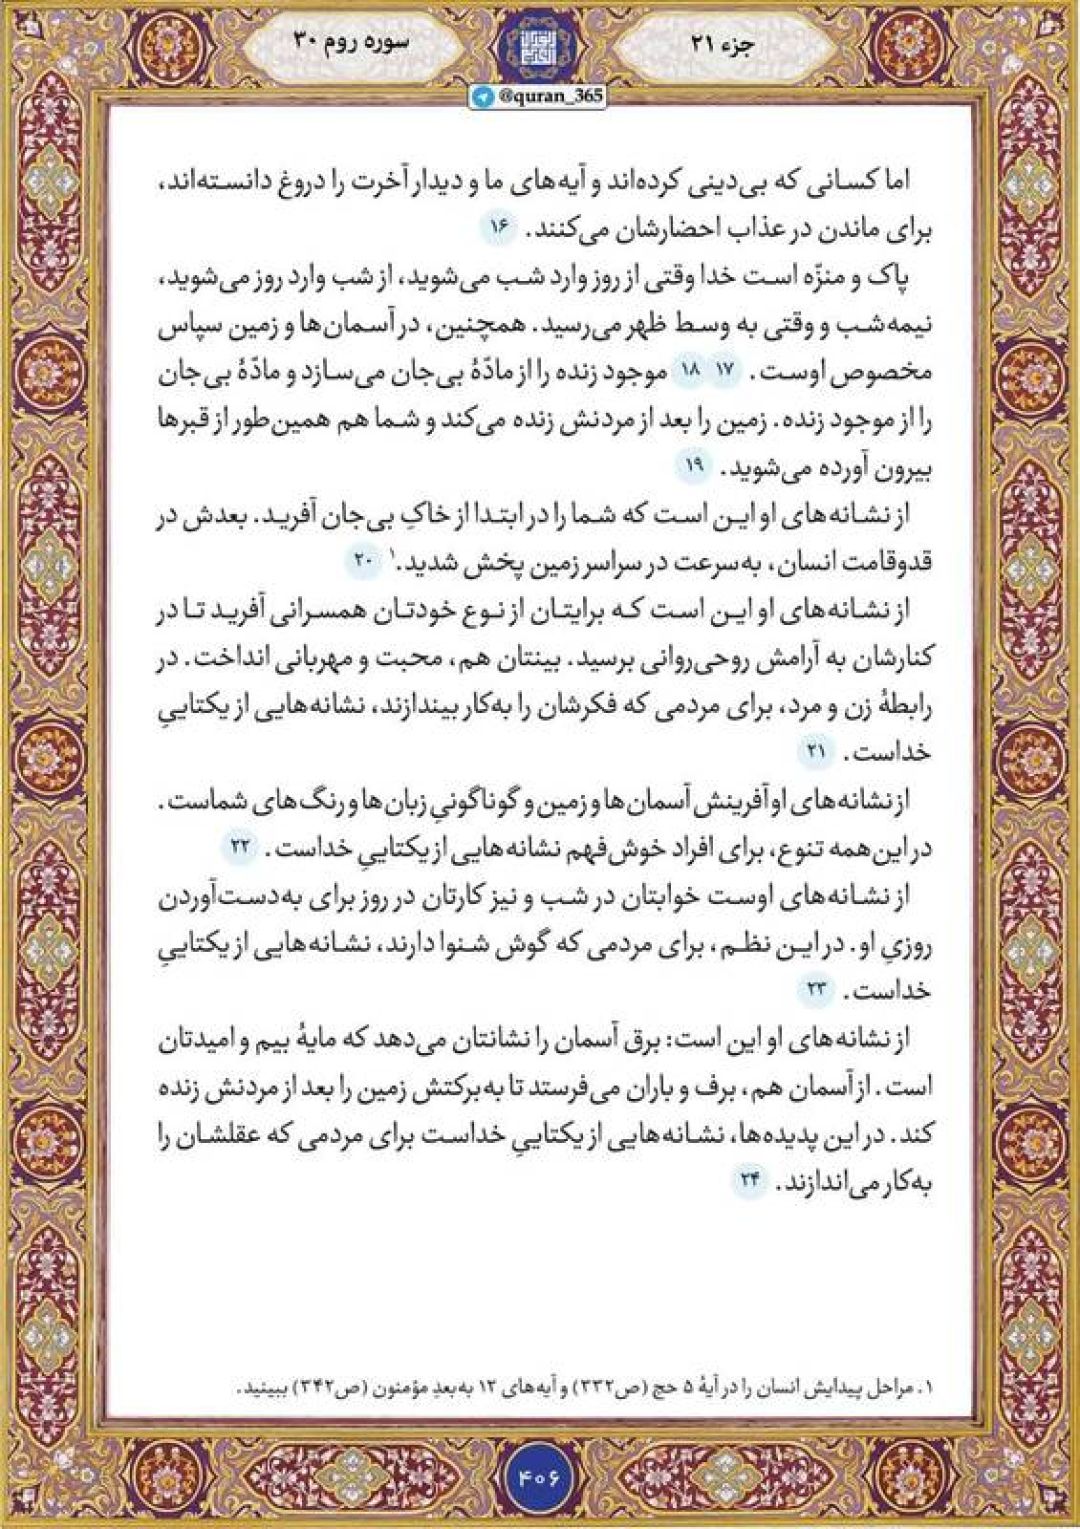 جزء ۲۱
سوره روم ۳۰
@quran_365
اما کسانی که بی‌دینی کرده‌اند و آیه‌های ما و دیدار آخرت را دروغ دانسته‌اند،
برای ماندن در عذاب احضارشان می‌کنند. ۱۶
پاک و منزّه است خدا وقتی از روز وارد شب می‌شوید، از شب وارد روز می‌شوید،
نیمه‌شب و وقتی به وسط ظهر می‌رسید. همچنین، در آسمان‌ها و زمین سپاس
مخصوص اوست. ۱۷ ۱۸ موجود زنده را از مادّهٔ بی‌جان می‌سازد و مادّهٔ بی‌جان
را از موجود زنده. زمین را بعد از مردنش زنده می‌کند و شما هم همین‌طور از قبرها
بیرون آورده می‌شوید. ۱۹
از نشانه‌های او این است که شما را در ابتدا از خاکِ بی‌جان آفرید. بعدش در
قدوقامت انسان، به‌سرعت در سراسر زمین پخش شدید.۱ ۲۰
از نشانه‌های او این است که برایتان از نوع خودتان همسرانی آفرید تا در
کنارشان به آرامش روحی‌روانی برسید. بینتان هم، محبت و مهربانی انداخت. در
رابطهٔ زن و مرد، برای مردمی که فکرشان را به‌کار بیندازند، نشانه‌هایی از یکتاییِ
خداست. ۲۱
از نشانه‌های او آفرینش آسمان‌ها و زمین و گوناگونیِ زبان‌ها و رنگ‌های شماست.
در این‌همه تنوع، برای افراد خوش‌فهم نشانه‌هایی از یکتاییِ خداست. ۲۲
از نشانه‌های اوست خوابتان در شب و نیز کارتان در روز برای به‌دست‌آوردن
روزیِ او. در این نظم، برای مردمی که گوش شنوا دارند، نشانه‌هایی از یکتاییِ
خداست. ۲۳
از نشانه‌های او این است: برق آسمان را نشانتان می‌دهد که مایهٔ بیم و امیدتان
است. از آسمان هم، برف و باران می‌فرستد تا به‌برکتش زمین را بعد از مردنش زنده
کند. در این پدیده‌ها، نشانه‌هایی از یکتاییِ خداست برای مردمی که عقلشان را
به‌کار می‌اندازند. ۲۴
۱. مراحل پیدایش انسان را در آیهٔ ۵ حج (ص۳۳۲) و آیه‌های ۱۲ به‌بعدِ مؤمنون (ص۳۴۲) ببینید.
۴۰۶